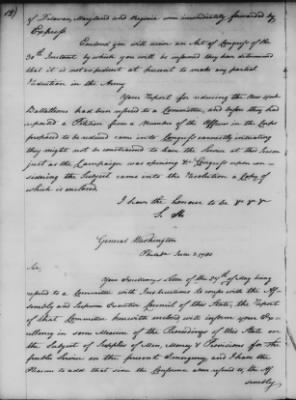 of Delaware, Maryland and Virginia were immediately forwarded by
Express
Enclosed you will receive an Act of Congress of the
30th Instant by which you will be informed they have determined
that it is not expedient at present to make any partial
Reduction in the Army
Your Report for reducing the New York
Battalions had been referred to a Committee, and before they had
reported a Petition from a Number of the Officers in the Corps
proposed to be reduced came into Congress earnestly intreating
they might not be constrained to leave the Service at this Season
just as the Campaign was opening &c Congress upon con-
sidering the Subject came into the Resolution a Copy of
which is enclosed
I have the honour to be &c &c &c
S. H.
General Washington
Philada June 2, 1780
Sir,
Your Excellencys Letter of the 27th of May being
referred to a Committee with Instructions to confer with the As-
sembly and Supreme Executive Council of this State, the Report
of that Committee herewith enclosed will inform your Ex-
cellency in some Measure of the Proceedings of this State on
the Subject of Supplies of Men, Money & Provisions for the
public Service on the present Emergency and I have the
Pleasure to add that since the Conference above referred to the As
sembly